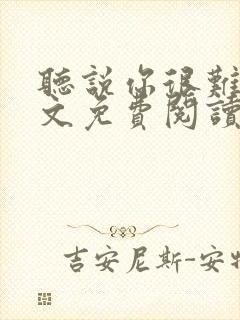 聽說你很難
文免費閱讀
吉安尼斯-安